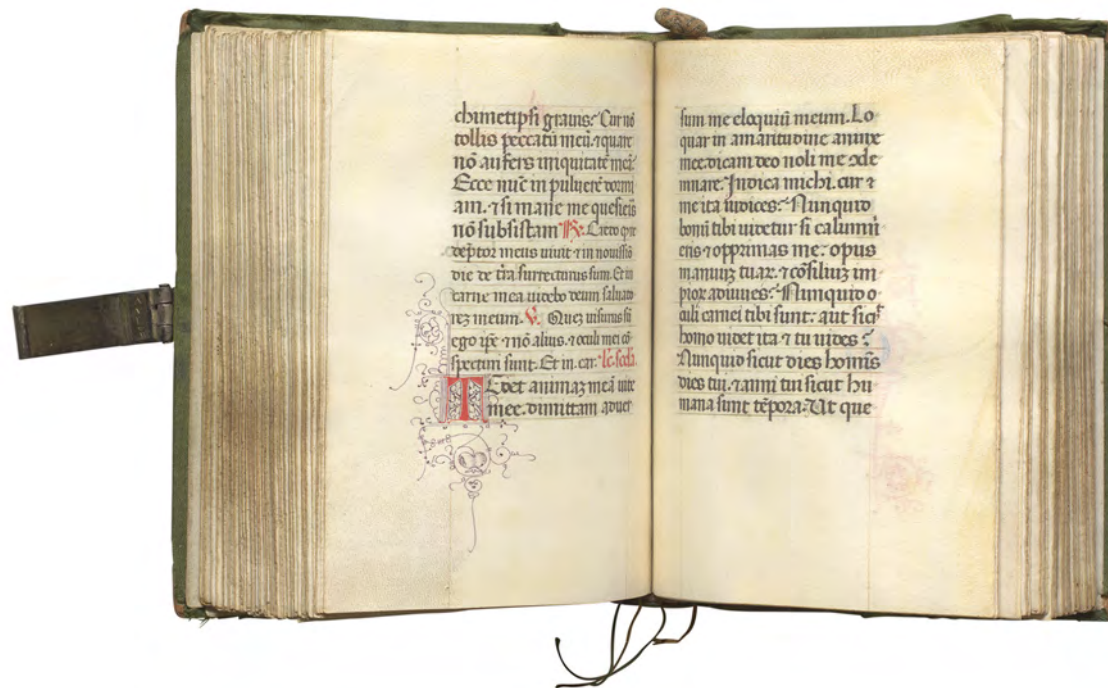 chimetipsi grauis: Cur nō
tollis peccatū meū. ⁊ quare
nō aufers iniquitatē meā.
Ecce nūc in puluerē dormi
am. ⁊ si mane me quesieris
nō subsistam ℟. Credo qꝫ re
dēptor meus uiuit ⁊ in nouissīo
die de t̄ra surrecturus sum. Et in
carne mea uidebo deum saluato
rēz meum. ℣. Quez uisurus sū
ego ip̄e ⁊ nō alius. ⁊ oculi mei cō
specturi sunt. Et in. car. lc̄. scd̄a.
TEdet animaz meā uite
mee. dimittam aduer
sum me eloquiū meum. Lo
quar in amaritudine anime
mee. dicam deo noli me ↄde
mnare. Indica michi. cur ⁊
me ita iudices: Nunquid
bonū tibi uidetur si calumni
eris ⁊ opprimas me: opus
manuuz tuaꝝ. ⁊ cōsiliuz im
pioꝝ adiuues: Nunquid o
culi carnei tibi sunt: aut sicᵗ
homo uidet ita ⁊ tu uides:
Nunquid sicut dies hominis
dies tui. ⁊ anni tui sicut hu
mana sunt tēpora. Ut que